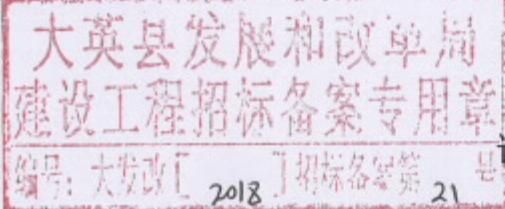 大英县发展和改革局
建设工程招标备案专用章
编号：大发改［2018］招标备案第21号